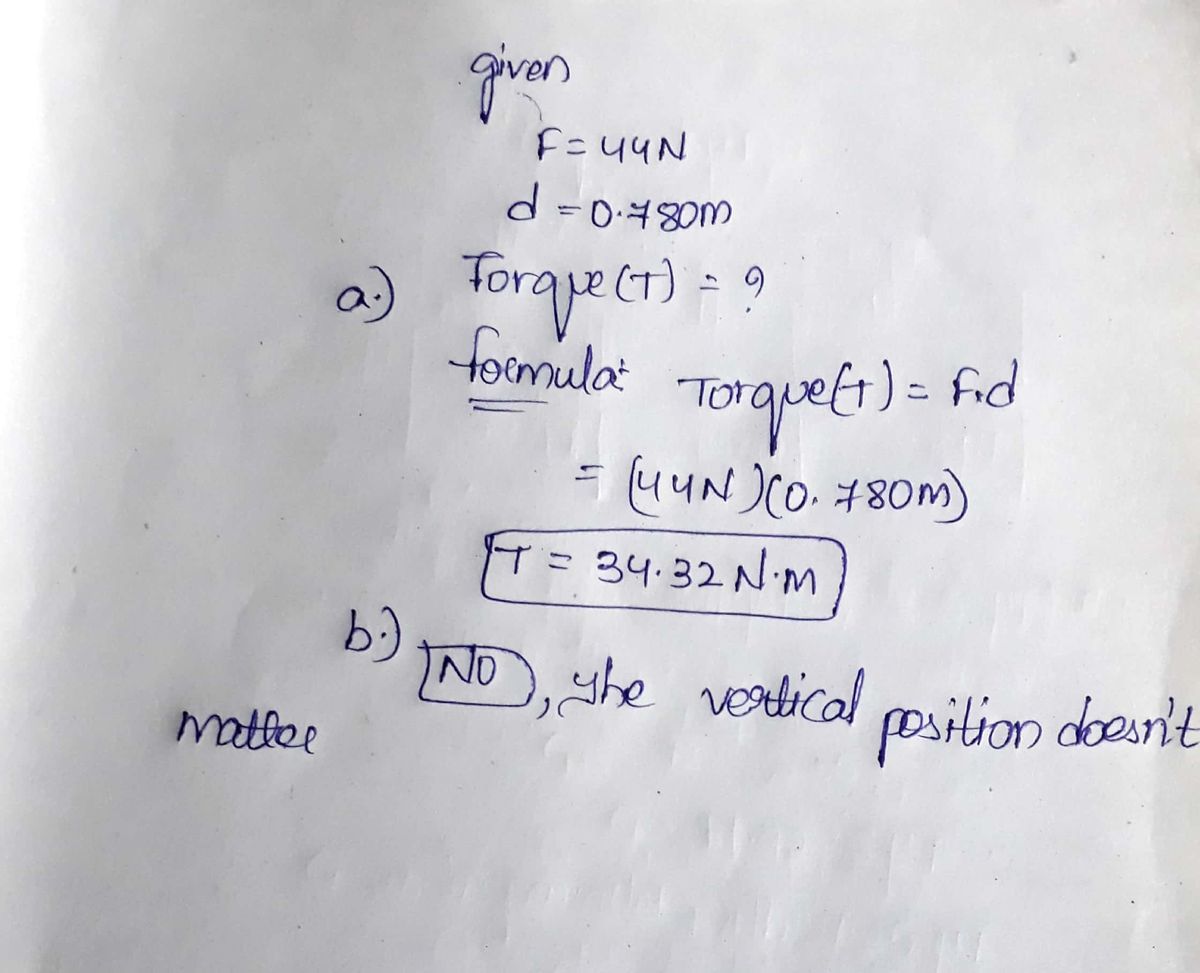 given
F = 44N
d = 0.780m
a.) Torque (T) = ?
formula: Torque(T) = F.d
= (44N)(0.780m)
T = 34.32 N.m
b.) NO, The vertical position doesn't
matter